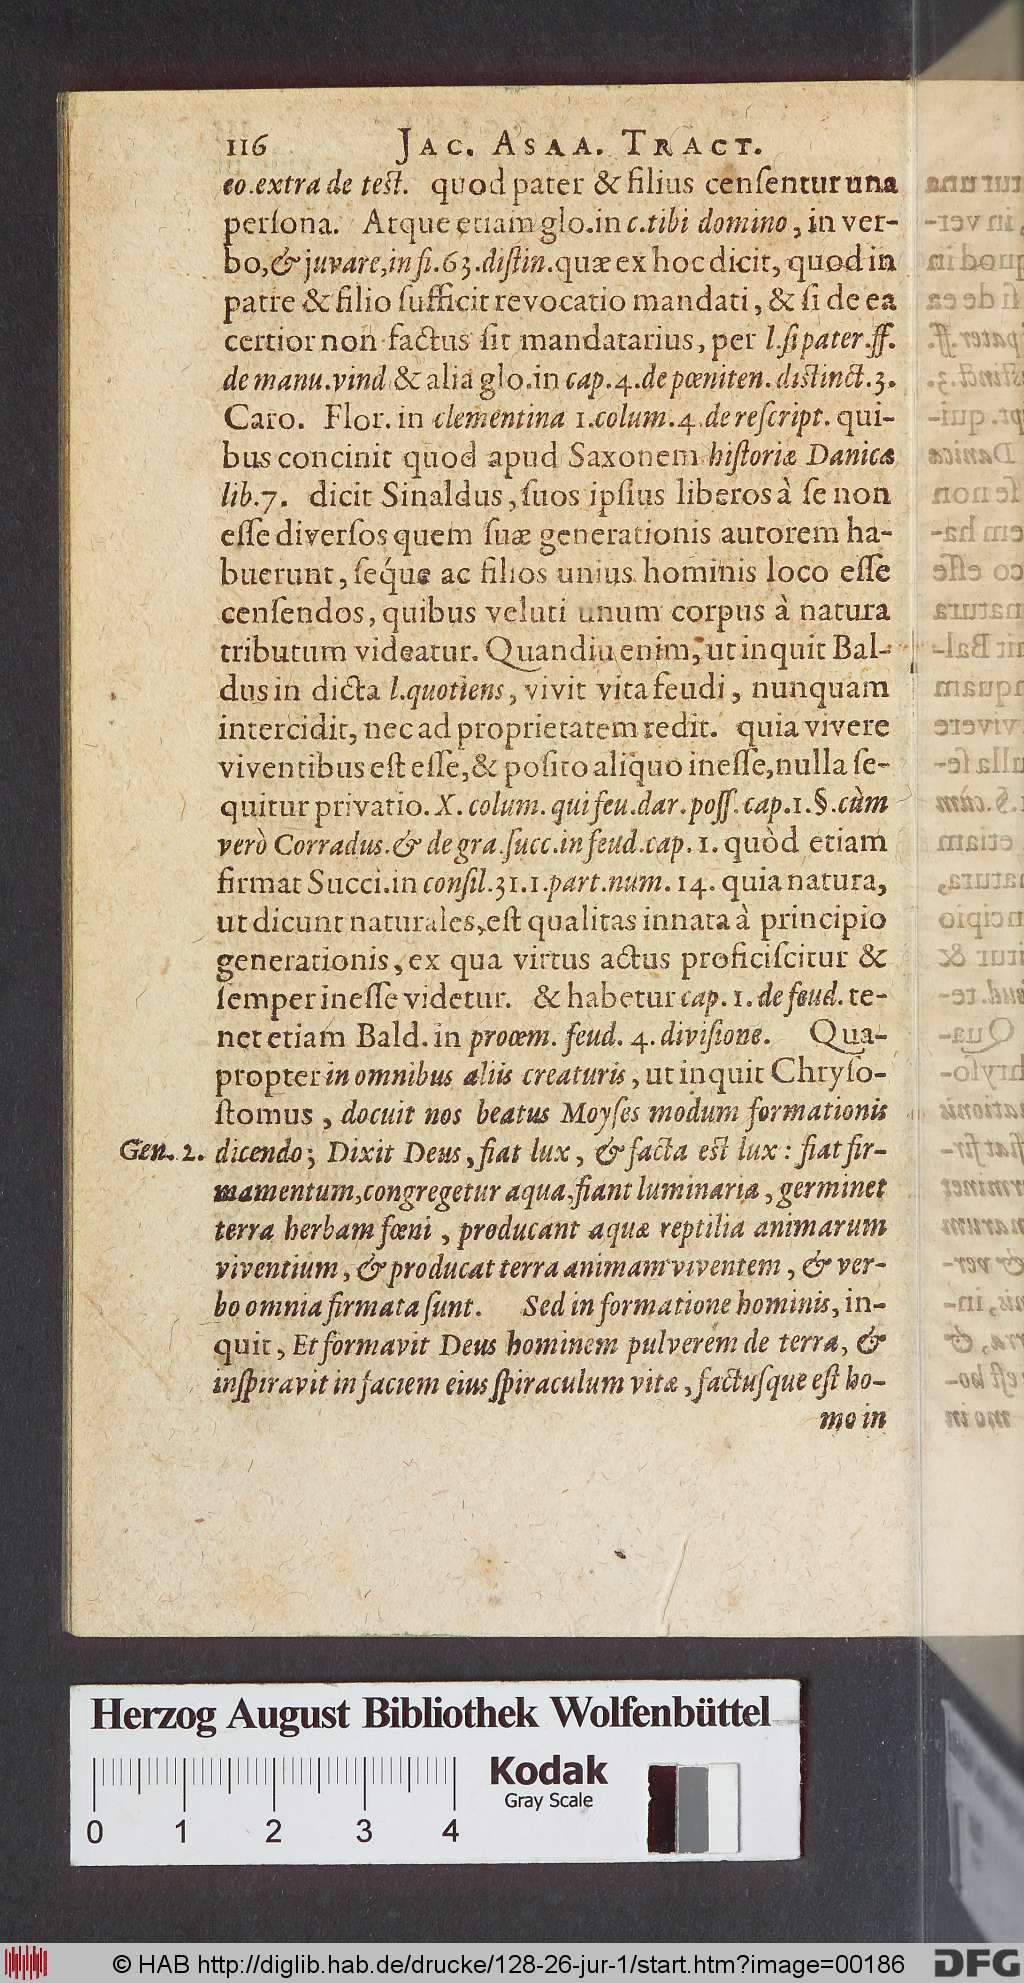 116 JAC. ASAA. TRACT.
eo.extra de test. quod pater & filius cenſentur una
perſona. Atque etiam glo. in c. tibi domino, in ver-
bo, & juvare, in fi. 63. diſtin. quæ ex hoc dicit, quod in
patre & filio ſufficit revocatio mandati, & ſi de ea
certior non factus ſit mandatarius, per l. ſi pater. ff.
de manu. vind & alia glo. in cap. 4. de pœniten. distinct. 3.
Caro. Flor. in clementina 1. colum. 4. de reſcript. qui-
bus concinit quod apud Saxonem hiſtoriæ Danicæ
lib. 7. dicit Sinaldus, ſuos ipſius liberos à ſe non
eſſe diverſos quem ſuæ generationis autorem ha-
buerunt, ſeq́ue ac filios unius hominis loco eſſe
cenſendos, quibus veluti unum corpus à natura
tributum videatur. Quandiu enim, ut inquit Bal-
dus in dicta l. quotiens, vivit vita feudi, nunquam
intercidit, nec ad proprietatem redit. quia vivere
viventibus eſt eſſe, & poſito aliquo ineſſe, nulla ſe-
quitur privatio. X. colum. qui feu. dar. poſſ. cap. 1. §. cùm
verò Corradus. & de gra. ſucc. in feud. cap. 1. quòd etiam
firmat Succi. in conſil. 31. 1. part. num. 14. quia natura,
ut dicunt naturales, eſt qualitas innata à principio
generationis, ex qua virtus actus proficiſcitur &
ſemper ineſſe videtur. & habetur cap. 1. de feud. te-
net etiam Bald. in proœm. feud. 4. diviſione. Qua-
propter in omnibus aliis creaturis, ut inquit Chryſo-
ſtomus, docuit nos beatus Moyſes modum formationis
Gen. 2. dicendo; Dixit Deus, fiat lux, & facta est lux: fiat fir-
mamentum, congregetur aqua, fiant luminaria, germinet
terra herbam fœni, producant aquæ reptilia animarum
viventium, & producat terra animam viventem, & ver-
bo omnia firmata ſunt. Sed in formatione hominis, in-
quit, Et formavit Deus hominem pulverem de terra, &
inſpiravit in faciem eius ſpiraculum vitæ, factuſque eſt ho-
mo in
Herzog August Bibliothek Wolfenbüttel
Kodak
Gray Scale
0 1 2 3 4
© HAB http://diglib.hab.de/drucke/128-26-jur-1/start.htm?image=00186 DFG